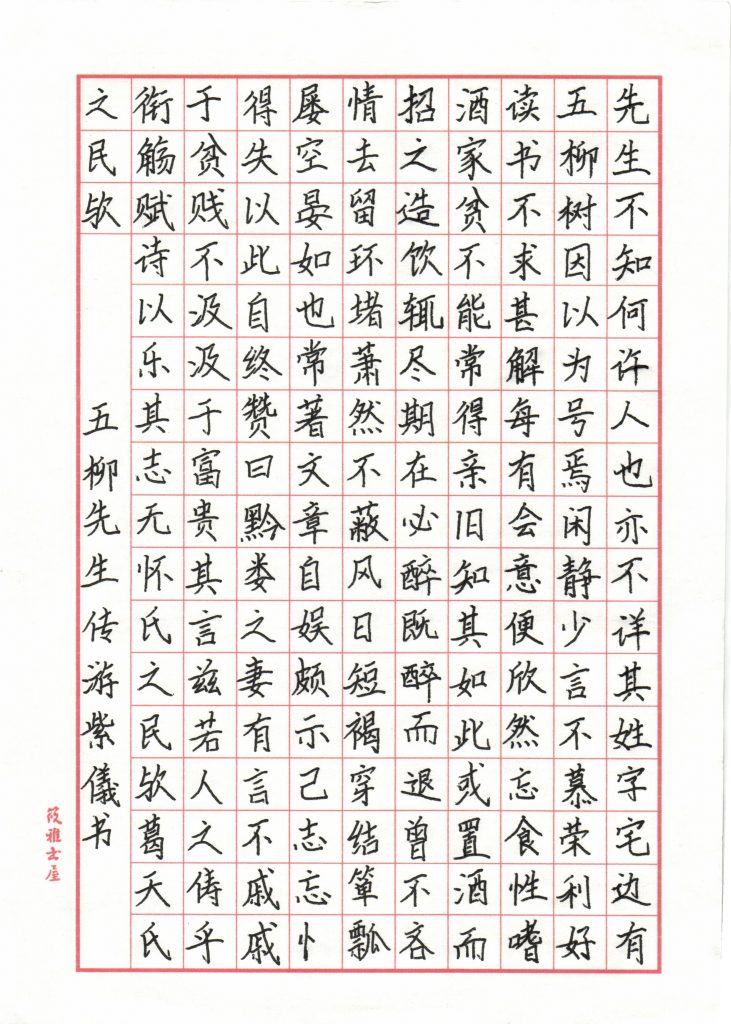 先生不知何许人也亦不详其姓字宅边有
五柳树因以为号焉闲静少言不慕荣利好
读书不求甚解每有会意便欣然忘食性嗜
酒家贫不能常得亲旧知其如此或置酒而
招之造饮辄尽期在必醉既醉而退曾不吝
情去留环堵萧然不蔽风日短褐穿结箪瓢
屡空晏如也常著文章自娱颇示己志忘忄
得失以此自终赞曰黔娄之妻有言不戚戚
于贫贱不汲汲于富贵其言兹若人之俦乎
衔觞赋诗以乐其志无怀氏之民欤葛天氏
之民欤
五柳先生传游紫儀书
雅士屋